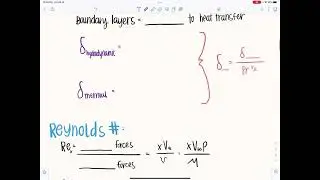 Boundary layers = ______ to heat transfer
δ hydrodynamic =
δ thermal =
δ_ = δ__ / Pr^1/3
Reynolds #:
Reₓ = ______ forces / ______ forces = xV∞ / ν = xV∞ρ / μ